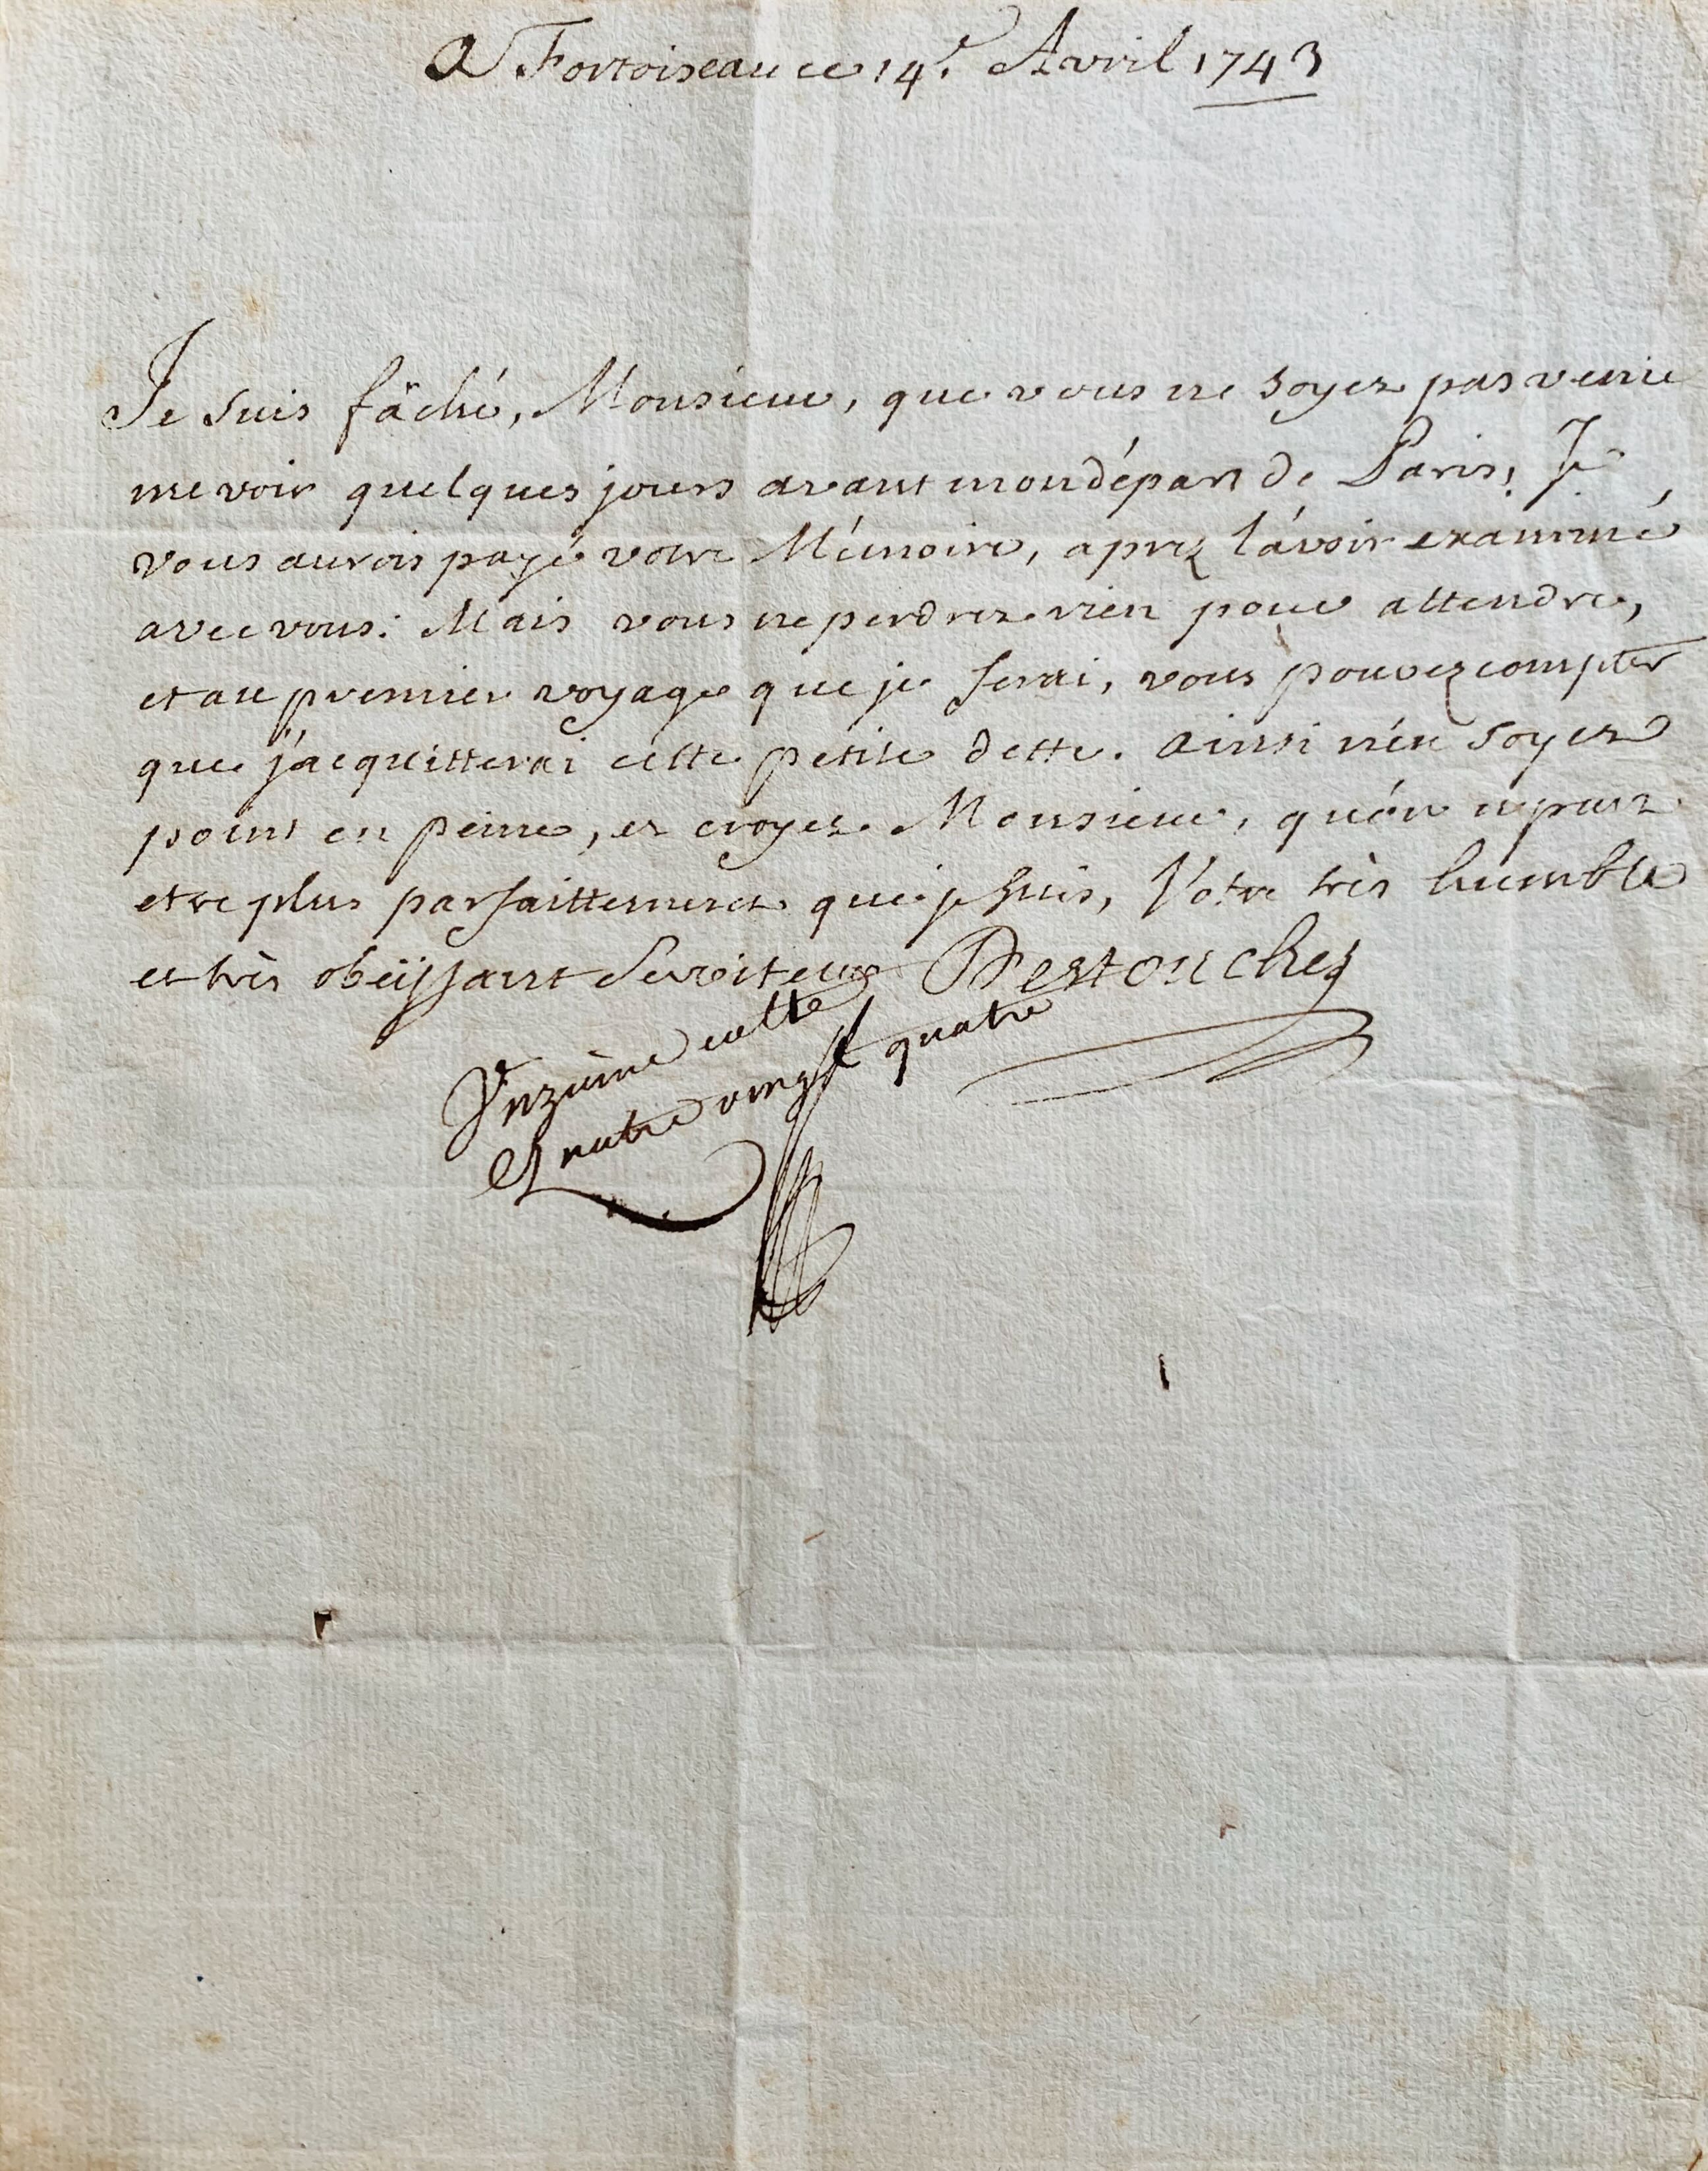 A Fortoiseau ce 14.e Avril 1743
Je suis fâché, Monsieur, que vous ne soyez pas venu
me voir quelques jours avant mon départ de Paris; Je
vous aurois payé votre Mémoire, aprez l'avoir examiné
avec vous: Mais vous ne perdrez rien pour attendre,
et au premier voyage que je ferai, vous pouvez compter
que j'acquitterai cette petite dette. Ainsi n'en soyez
point en peine, et croyez Monsieur, qu'on ne peut
etre plus parfaittement que je suis, Votre très humble
et très obéïssant Serviteur Destouches
Onzième cotte
Quatre vingt quatre